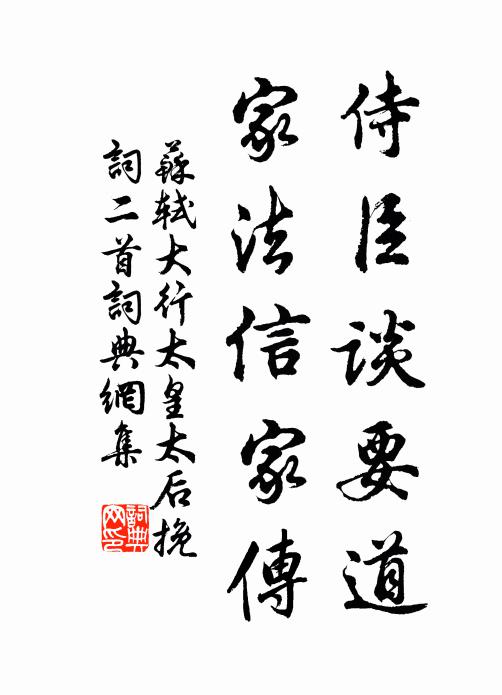 侍臣談要道
家法信家傳
蘇軾大行太皇太后挽
詞二首詞典網集
詞典
网印